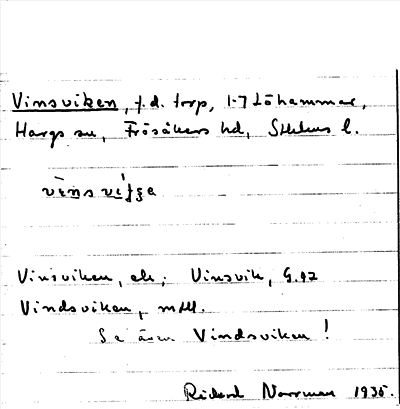 Vinsviken, f.d. torp, 1-7 Löhammar,
Hargs sn, Frösåkers hd, Sthlms l.
Vinsviken, ek; Vinsvik, G.47
Vindsviken, mtl.
Se även Vindsviken!
Rickard Norrman 1935.